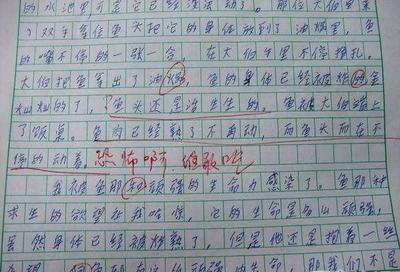 的水池里,可是它已经没活力了。那位大伯里某
了双手拿住鱼头把它的身体放到了油锅里,鱼
的嘴不停的一张一合,在大伯手里不停挣扎,
大伯把鱼拿出了油锅,鱼的身体已经被炸的金
灿灿的了,鱼头还是活生生的。鱼被大伯端上
了饭桌。鱼肉已经熟了不再动,而鱼头而在不
停的动着。恐怖啊 继续吃
我被鱼那种顽强的生命力感染了。鱼那种
求生的欲望在我,它的生命是多么顽强,
虽然身体已经被炸熟了,但是他还是抱着一丝
鱼在,那我们不是